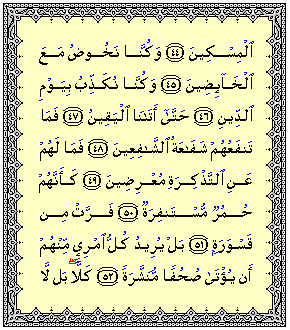 ٱلْمِسْكِينَ ٤٤ وَكُنَّا نَخُوضُ مَعَ
ٱلْخَآئِضِينَ ٤٥ وَكُنَّا نُكَذِّبُ بِيَوْمِ
ٱلدِّينِ ٤٦ حَتَّىٰٓ أَتَىٰنَا ٱلْيَقِينُ ٤٧ فَمَا
تَنفَعُهُمْ شَفَـٰعَةُ ٱلشَّـٰفِعِينَ ٤٨ فَمَا لَهُمْ
عَنِ ٱلتَّذْكِرَةِ مُعْرِضِينَ ٤٩ كَأَنَّهُمْ
حُمُرٌ مُّسْتَنفِرَةٌ ٥٠ فَرَّتْ مِن
قَسْوَرَةٍۭ ٥١ بَلْ يُرِيدُ كُلُّ ٱمْرِئٍ مِّنْهُمْ
أَن يُؤْتَىٰ صُحُفًا مُّنَشَّرَةً ٥٢ كَلَّا بَل لَّا